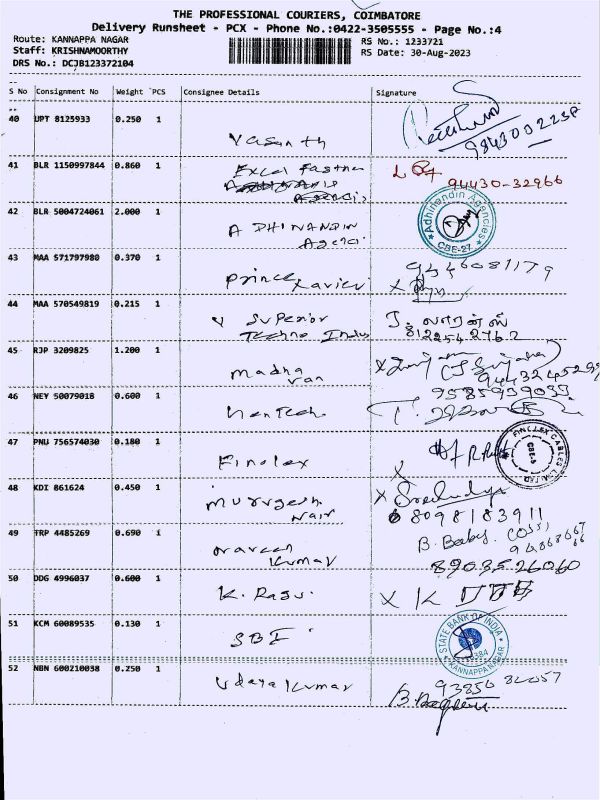 THE PROFESSIONAL COURIERS, COIMBATORE
Delivery Runsheet - PCX - Phone No.:0422-3505555 - Page No.:4
Route: KANNAPPA NAGAR RS No.: 1233721
Staff: KRISHNAMOORTHY RS Date: 30-Aug-2023
DRS No.: DCJB123372104
S No Consignment No Weight PCS Consignee Details Signature
40 UPT 8125933 0.250 1
Vasanth 9843002238
41 BLR 1150997844 0.860 1
Excel Fastner 94430-32966
Agencis
42 BLR 5004724061 2.000 1
ADHINANDIN Adhinandin Agencies
Agenci CBE-27
43 MAA 571797980 0.370 1
Prince Xavier 9446081179
44 MAA 570549819 0.215 1
Superior J. லாரன்ஸ்
Techno Indus 8122542762
45 RJP 3209825 1.200 1
Madha
van 9443245299
46 NEY 50079018 0.600 1
9585939033
47 PNU 756574030 0.180 1
Finolex FINOLEX CABLES LIMITED CBE-5
48 KDI 861624 0.450 1
Murugesh
Nair 8098183911
49 TRP 4485269 0.690 1
Naveen B. Baby.
Kumar 8903526060
50 DDG 4996037 0.600 1
K. Rasu X K
51 KCM 60089535 0.130 1
SBI STATE BANK OF INDIA KANNAPPA NAGAR
52 NBN 600210038 0.250 1
Udaya Kumar 93850 82057